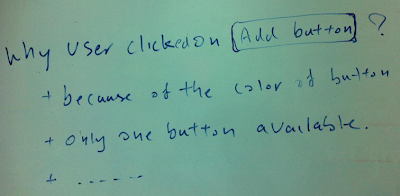 Why User clicked on Add button ?
+ because of the color of button
+ only one button available.
+ ------